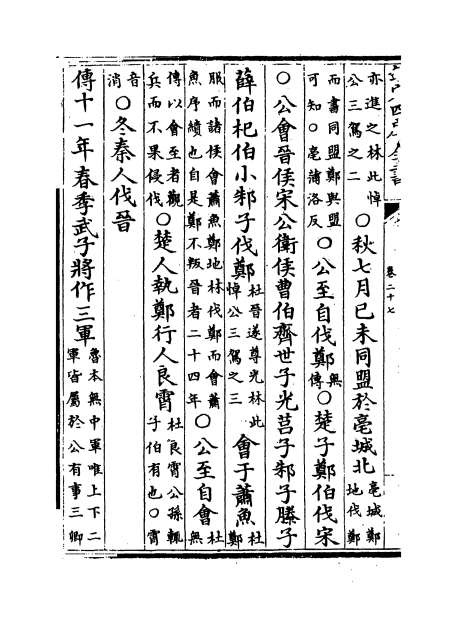 卷二十七
亦進之林此悼公三駕之二○秋七月己未同盟於亳城北亳城鄭地伐鄭
而書同盟鄭與盟可知○亳蒲洛反○公至自伐鄭無傳○楚子鄭伯伐宋
○公會晉侯宋公衛侯曹伯齊世子光莒子邾子滕子
薛伯杞伯小邾子伐鄭杜晉遂尊光林此悼公三駕之三會于蕭魚杜鄭
服而諸侯會蕭魚鄭地林伐鄭而會蕭魚序績也自是鄭不叛晉者二十四年○公至自會杜無
傳以會至者觀兵而不果侵伐○楚人執鄭行人良霄杜良霄公孫輒子伯有也○霄
音消○冬秦人伐晉
傳十一年春季武子將作三軍魯本無中軍唯上下二軍皆屬於公有事三卿